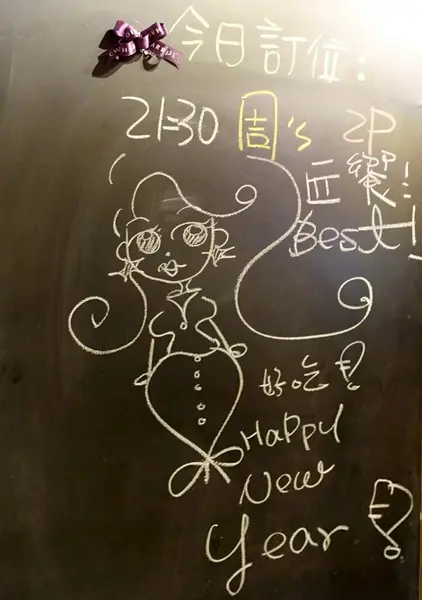 今日訂位:
21:30 周's 2P
匠饗!
Best!
好吃!
Happy
New
Year!